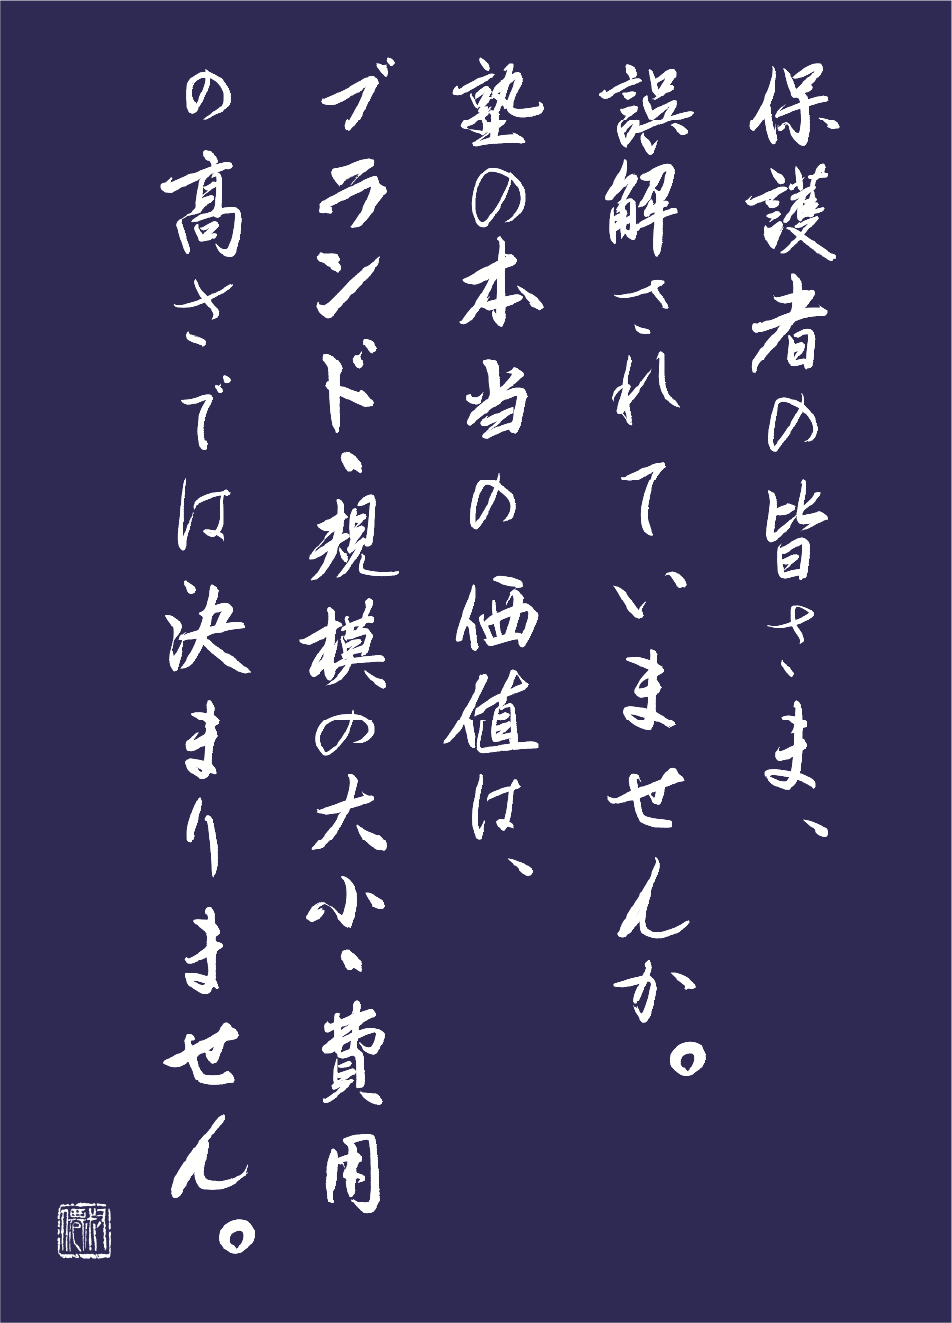 保護者の皆さま、
誤解されていませんか。
塾の本当の価値は、
ブランド・規模の大小・費用
の高さでは決まりません。